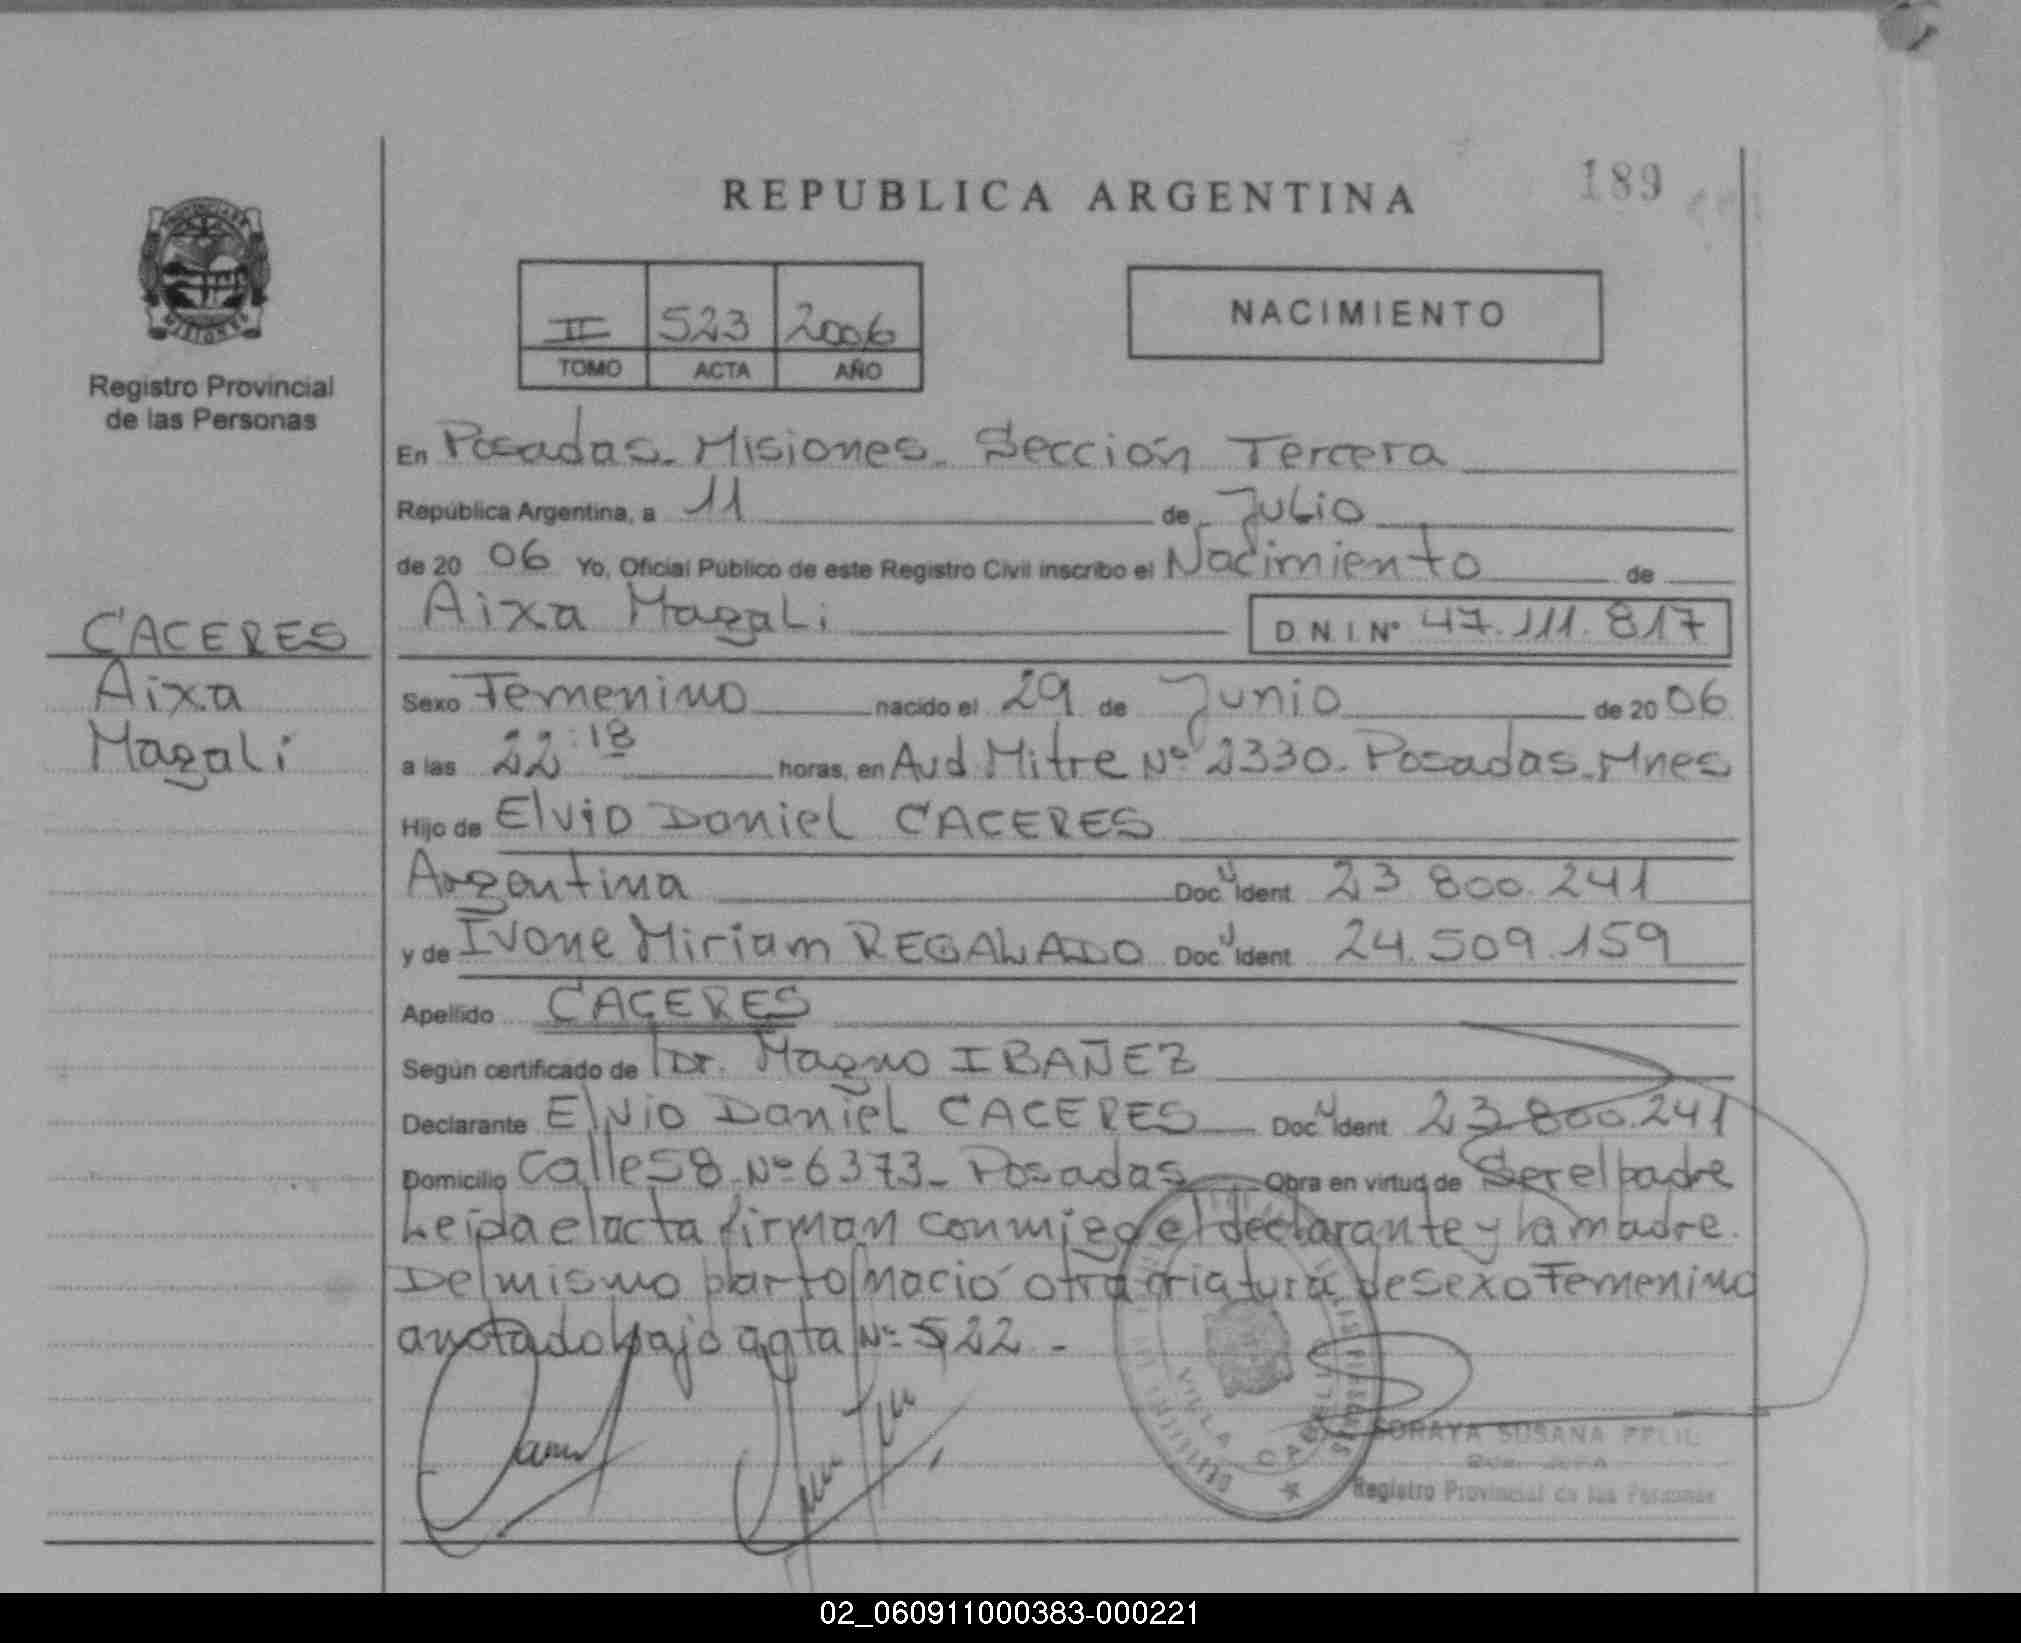 REPUBLICA ARGENTINA
189
PROVINCIA DE
MISIONES
Registro Provincial
de las Personas
II 523 2006
TOMO ACTA AÑO
NACIMIENTO
En Posadas - Misiones - Sección Tercera
República Argentina, a 11 de Julio
de 20 06 Yo, Oficial Público de este Registro Civil inscribo el Nacimiento de
Aixa Magali D N I Nº 47.111.817
CACERES
Aixa
Magali
Sexo Femenino nacido el 29 de Junio de 20 06
a las 22:18 horas, en Avd Mitre Nº 2330 - Posadas - Mnes
Hijo de Elvio Daniel CACERES
Argentina Doc Ident 23 800.241
y de Ivone Miriam REGALADO Doc Ident 24.509.159
Apellido CACERES
Según certificado de Dr. Magno IBAÑEZ
Declarante Elvio Daniel CACERES Doc Ident 23 800.241
Domicilio Calle 58 - Nº 6373 - Posadas Obra en virtud de Ser el padre
Leida el acta firman conmigo el declarante y la madre.
Del mismo parto nació otra criatura de sexo Femenino
anotado bajo acta Nº 522 -
VILLA CABELLO
SORAYA SUSANA
Registro Provincial de las Personas
02_060911000383-000221